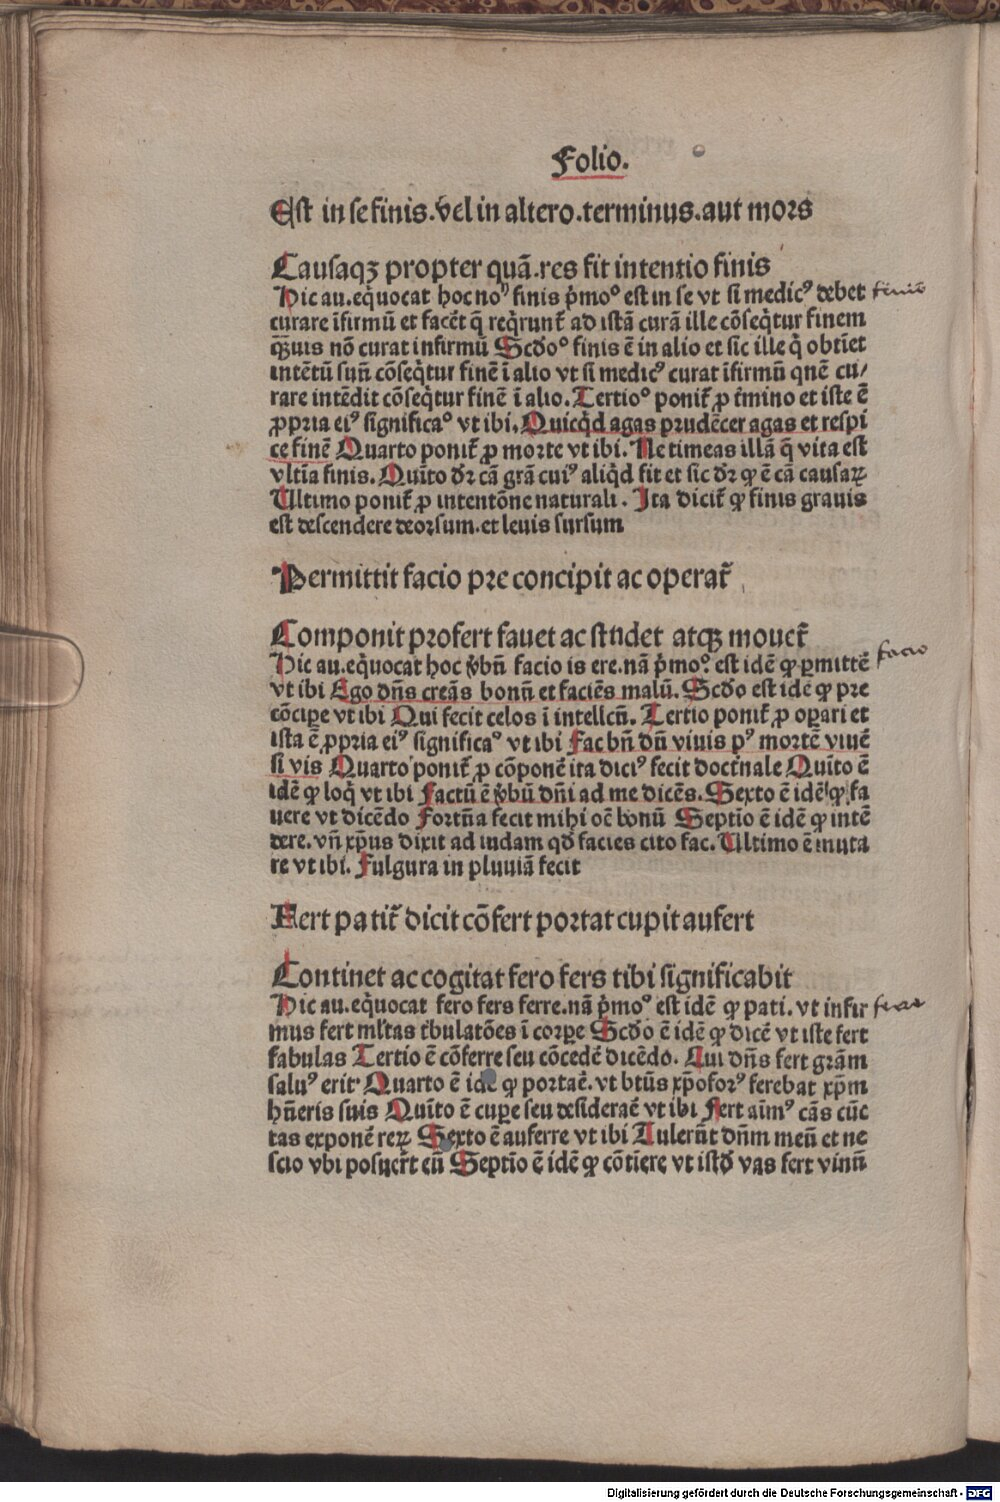 Folio.
Est in se finis.vel in altero.terminus.aut mors
Causaqꝫ propter quā.res fit intentio finis
Hic au.eq̄uocat hoc noꝰ finis p̄moº est in se vt si medicꝰ debet
finis
curare īfirmū et facēt q̄ req̄runt̄ ad istā curā ille cōseq̄tur finem
q̄uis nō curat infirmū Scd̄oº finis ē in alio et sic ille q̄ obtīet
intētū suū cōseq̄tur finē ī alio vt si medicꝰ curat īfirmū qnē cu/
rare intēdit cōseq̄tur finē ī alio. Tertioº ponit̄ ꝓ t̄mino et iste ē
ꝓpria eiꝰ significaº vt ibi. Quicq̄d agas prudēcer agas et respi
ce finē Quarto ponit̄ ꝓ morte vt ibi. Ne timeas illā q̄ vita est
vltīa finis. Quīto dr̄ cā grā cuiꝰ aliq̄d fit et sic dr̄ ꝙ ē cā causaꝝ
Ultimo ponit̄ ꝓ intentōne naturali. Ita dicit̄ ꝙ finis grauis
est descendere deorsum.et leuis sursum
Permittit facio pre concipit ac operat̄
Componit profert fauet ac studet atqꝫ mouet̄
Hic au.eq̄uocat hoc v̄bū facio is ere.nā p̄moº est idē ꝙ ꝑmittē
facio
vt ibi Ego dn̄s creās bonū et faciēs malū. Scd̄o est idē ꝙ pre
cōciꝑe vt ibi Qui fecit celos ī intellcū. Tertio ponit̄ ꝓ oꝑari et
ista ē ꝓpria eiꝰ significaº vt ibi Fac bn̄ dū viuis pꝰ mortē viuē
si vis Quarto ponit̄ ꝓ cōponē ita diciꝰ fecit doct̄nale Quīto ē
idē ꝙ loq̄ vt ibi Factū ē v̄bū dn̄i ad me dicēs. Sexto ē idē ꝙ fa
uere vt dicēdo Fortūa fecit mihi oē bonū Septīo ē idē ꝙ intē
dere. vn̄ xp̄us dixit ad iudam qd̄ facies cito fac. Ultimo ē muta
re vt ibi. Fulgura in pluuiā fecit
Fert patit̄ dicit cōfert portat cupit aufert
Continet ac cogitat fero fers tibi significabit
Hic au.eq̄uocat fero fers ferre.nā p̄moº est idē ꝙ pati. vt infir
ferre
mus fert ml̄tas tb̄ulatōes ī corꝑe Scd̄o ē idē ꝙ dicē vt iste fert
fabulas Tertio ē cōferre seu cōcedē dicēdo. Cui dn̄s fert grām
saluꝰ erit Quarto ē idē ꝙ portaē. vt bt̄us xp̄oforꝰ ferebat xp̄m
hūeris suis Quīto ē cuꝑe seu desideraē vt ibi Fert aīmꝰ cās cūc
tas exponē reꝝ Sexto ē auferre vt ibi Tulerūt dn̄m meū et ne
scio vbi posuer̄t eū Septīo ē idē ꝙ cōtīere vt istd̄ vas fert vinū
Digitalisierung gefördert durch die Deutsche Forschungsgemeinschaft - DFG